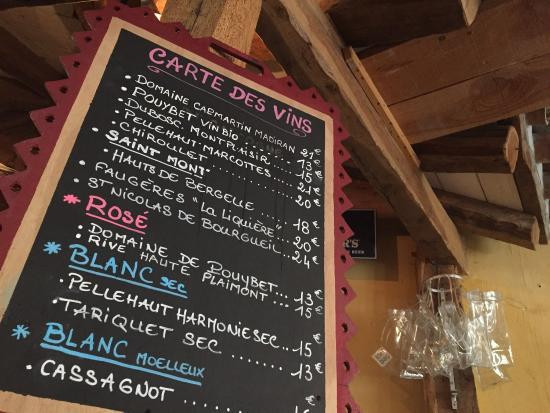 CARTE DES VINS
• DOMAINE CABMARTIN MADIRAN . 21€
• POUYBET VIN BIO ...... 13€
• DUBOSC MONTPLAISIR ... 15€
• PELLEHAUT MARCOTTES .. 21€
• CHIROULET ........ 20€
• SAINT MONT
• HAUTS DE BERGELLE ... 18€
• FAUGÈRES "LA LIQUIÈRE" .. 20€
• ST NICOLAS DE BOURGUEIL .. 24€
* ROSÉ
• DOMAINE DE POUYBET... 13€
• RIVE HAUTE PLAIMONT ... 15€
* BLANC SEC
• PELLEHAUT HARMONIE SEC .. 15€
• TARIQUET SEC ........ 15€
* BLANC MOELLEUX
• CASSAGNOT ........ 13€